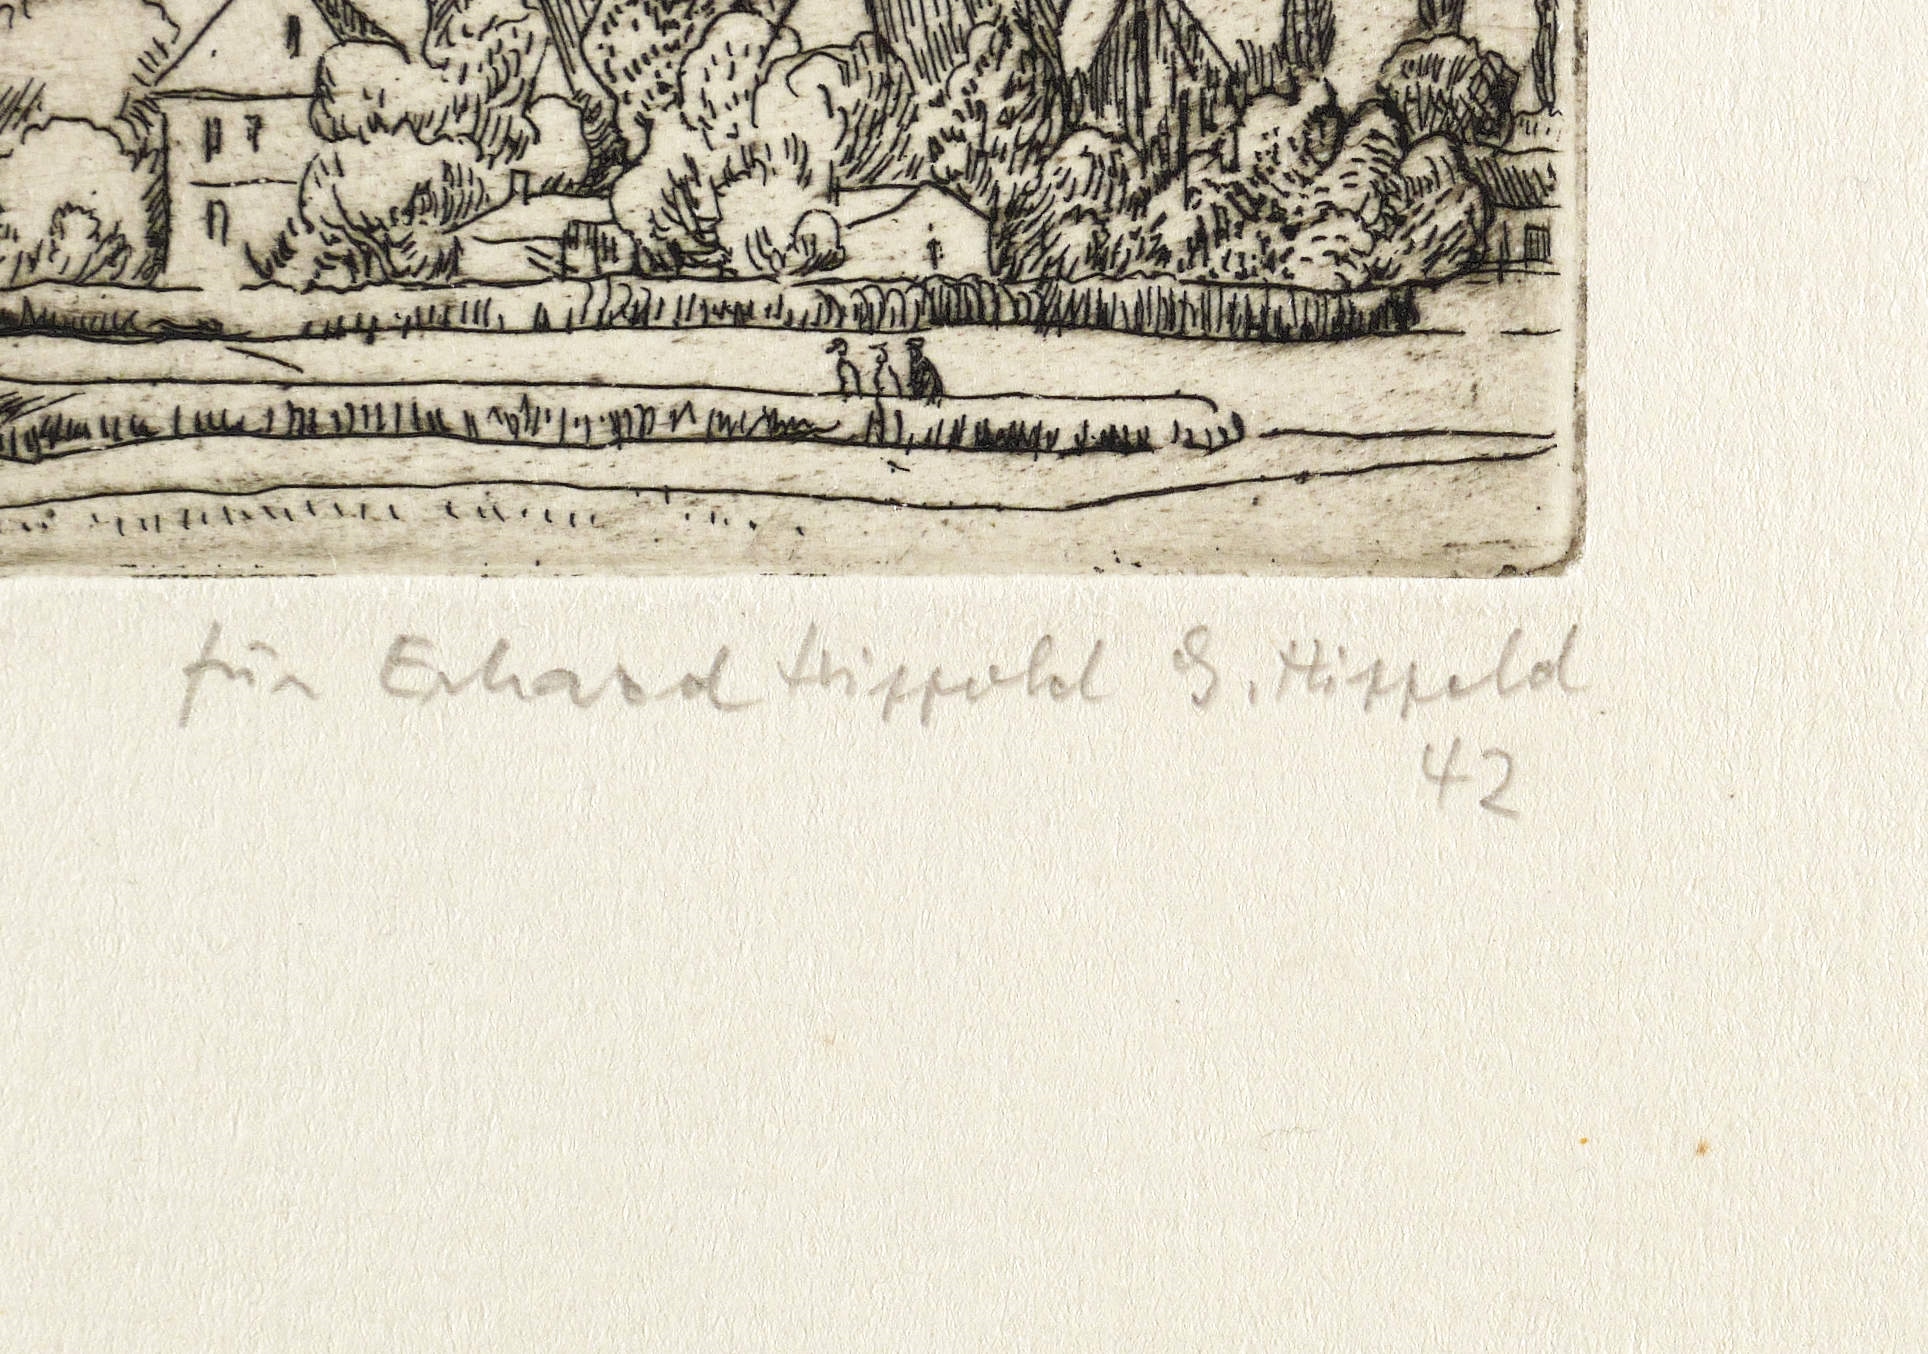 für Erhard Hippold G. Hippold
42